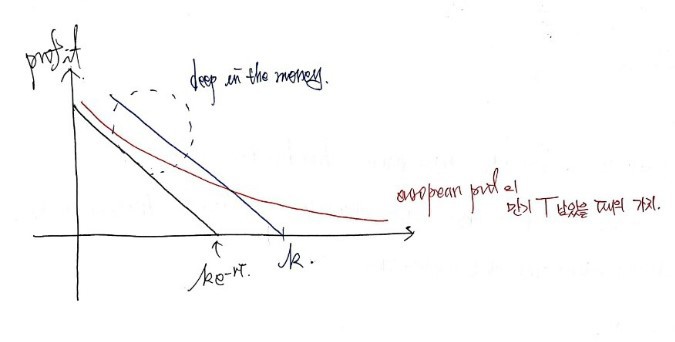 profit
deep in the money.
european put의
만기 T 남았을 때의 가치.
ke-rT.
k.